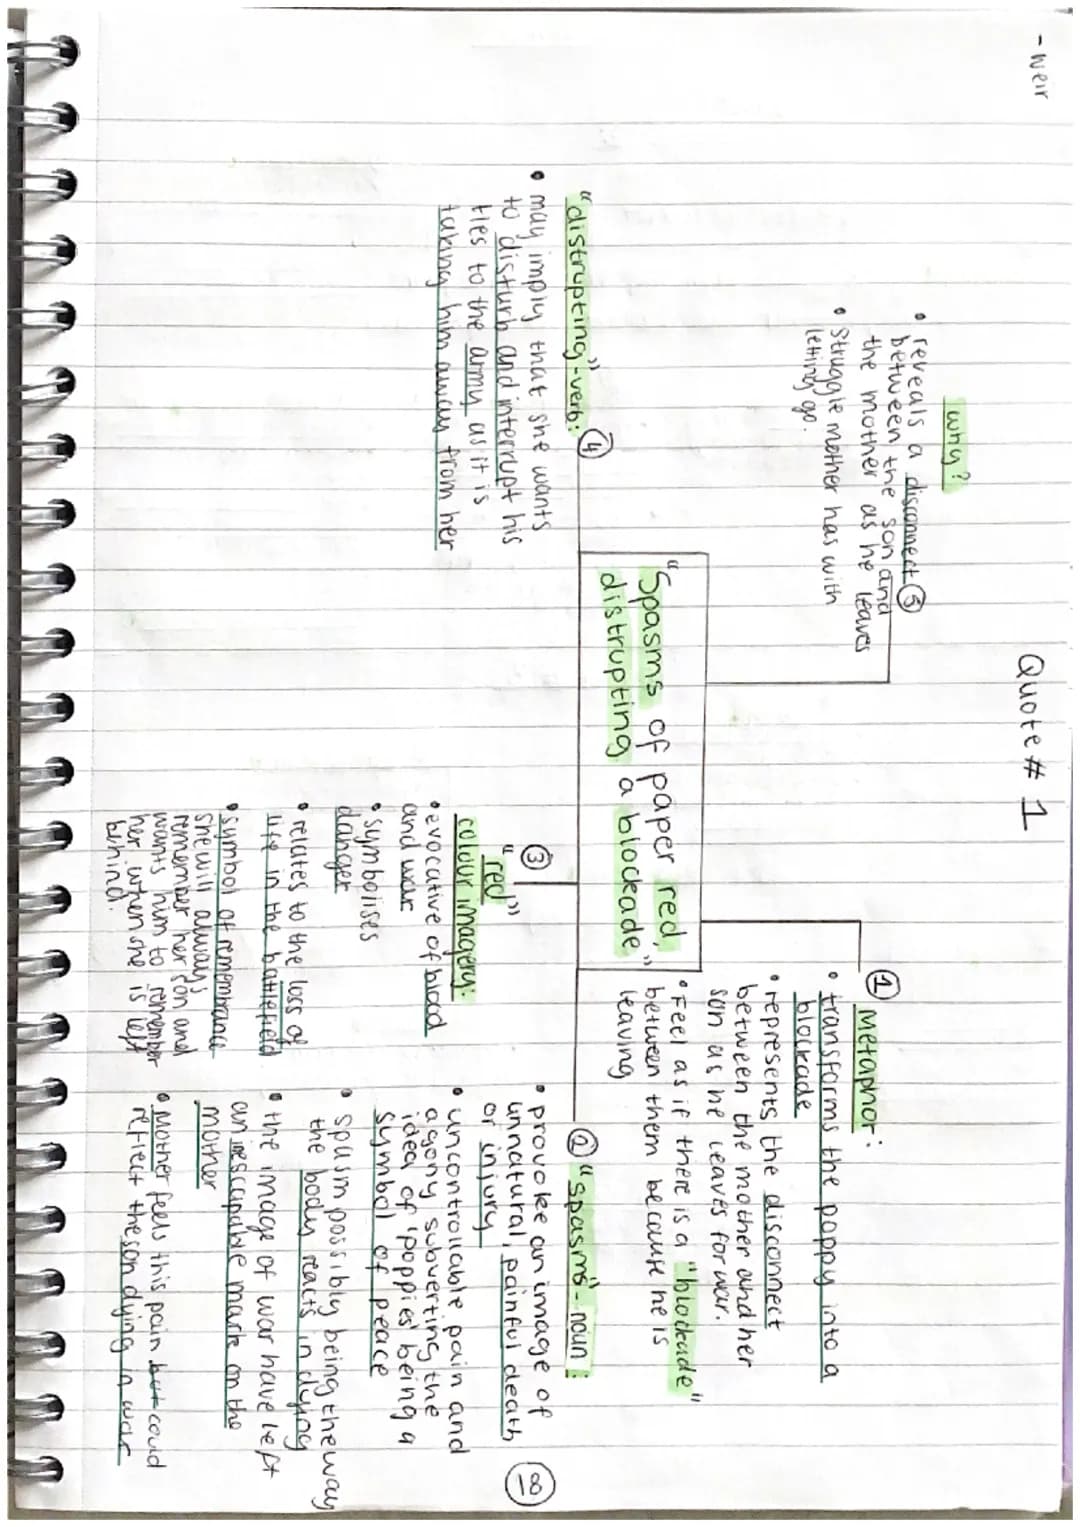 - weir
Quote # 1
why?
• reveals a disconnect ⑤
between the son and
the mother as he leaves
• Struggle mother has with
letting go.
"Spasms of paper red,
distrupting a blockade"
① Metaphor:
• transforms the poppy into a
blockade
• represents the disconnect
between the mother and her
son as he leaves for war.
• Feel as if there is a "blockade"
between them because he is
leaving
② "spasms" - noun:
• provoke an image of
unnatural, painful death
or injury
• uncontrollable pain and
agony subverting the
idea of 'poppies' being a
symbol of peace
• spasm possibly being the way
the body reacts in dying
• the image of war have left
an inescapable mark on the
mother
• Mother feels this pain but could
reflect the son dying in war
③
"red"
colour imagery:
• evocative of blood
and war
• symbolises
danger
• relates to the loss of
life in the battlefield
• symbol of remembrance
she will always
remember her son and
wants him to remember
her when she is left
behind.
"distrupting"-verb: ④
• may imply that she wants
to disturb and interrupt his
ties to the army as it is
taking him away from her
18